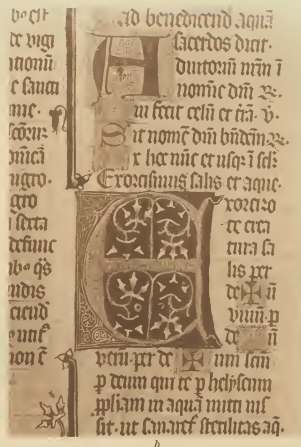 vo est
ce vigi
tionū
e sancti
nie.
scōrū
ugro.
gro
defunc
q̄s
ciend
non ē
Ad benedicend aquā
sacerdos dicit.
Adiutoriū nr̄m ī
nomīe dn̄i ℟.
Qui fecit celū et trā. ℣.
Sit nomē dn̄i bn̄dcm̄ ℟.
Ex hoc nūc et usqȝ ī sclm̄
Exorcismus salis et aque.
Exorcizo
te crea
tura sa
lis per
deū ✠ ū
vivū p
de ✠ ū
verū per de ✠ um scm̄
ꝑ deum qui te ꝑ helyseum
ꝓpham in aquā mitti ius
sit. ut sanaret sterilitas aq̄.
b